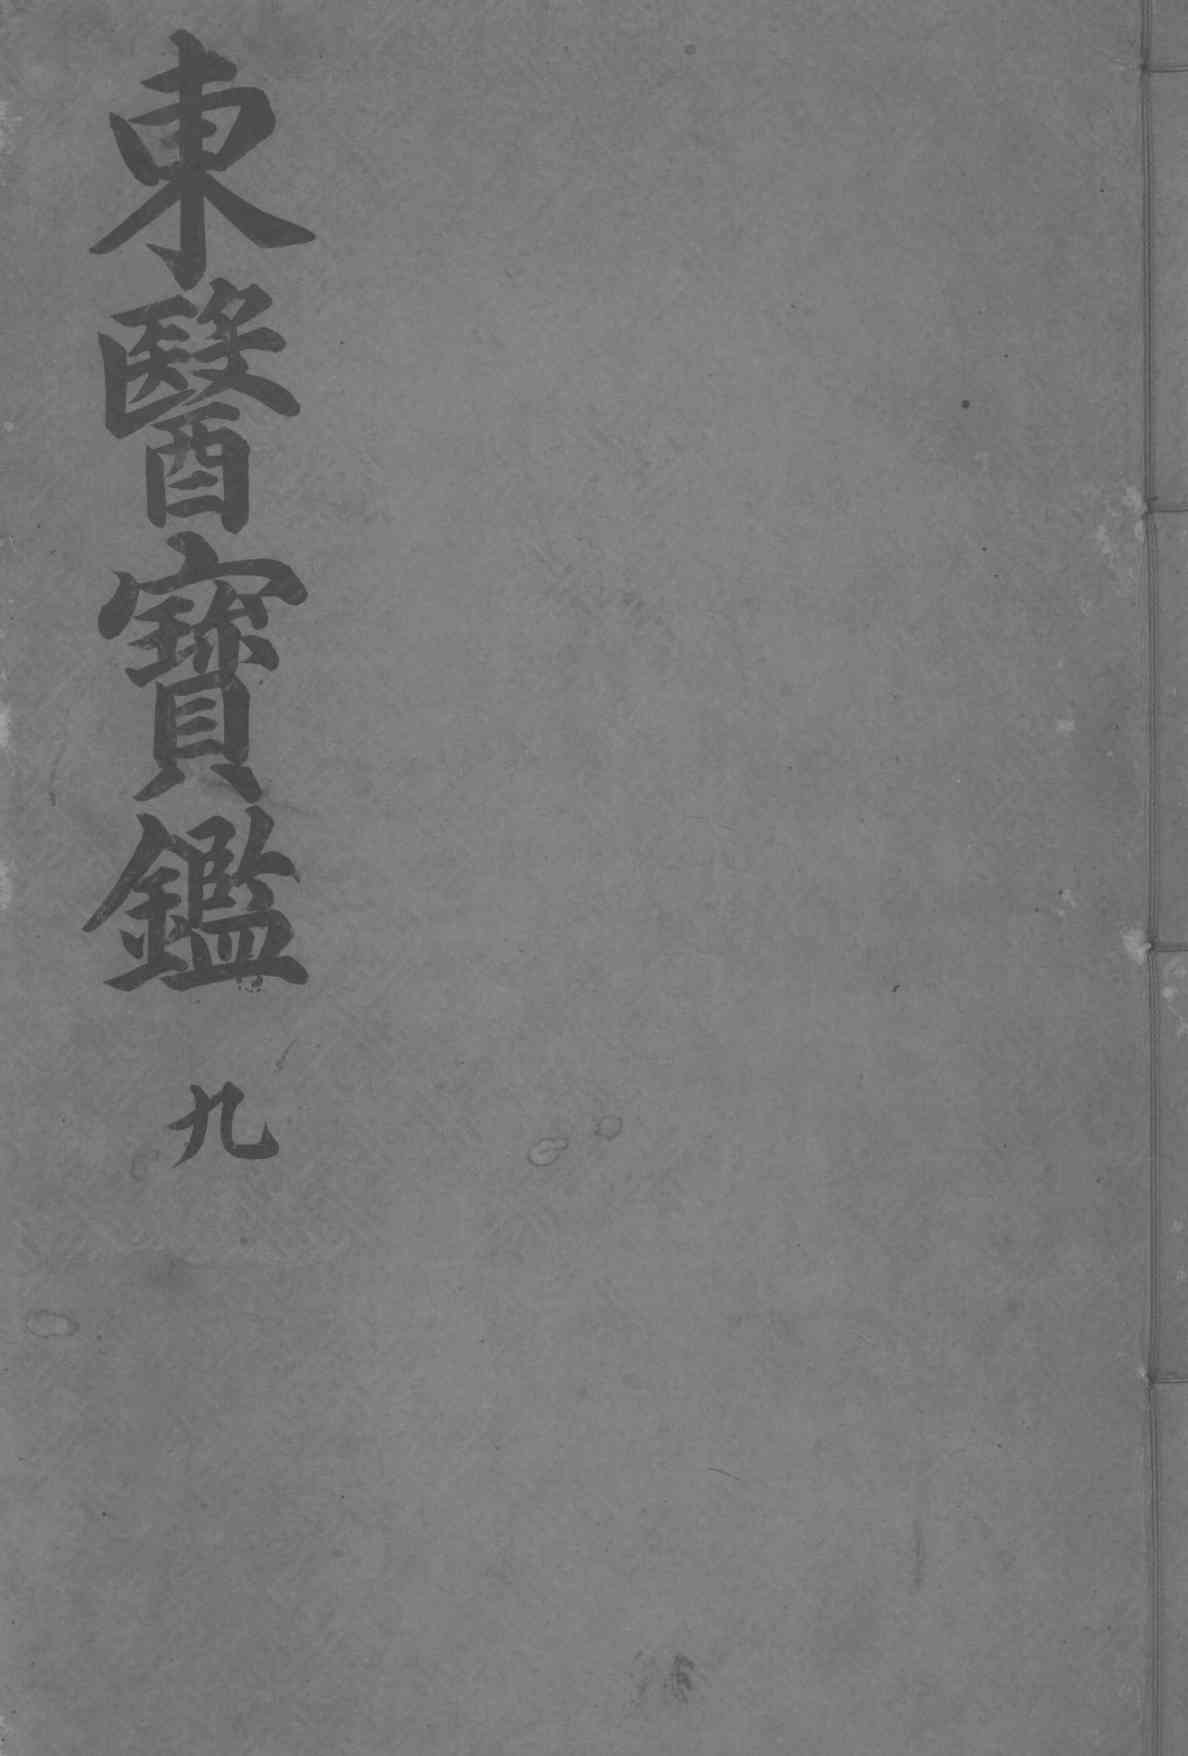 東醫寶鑑
九